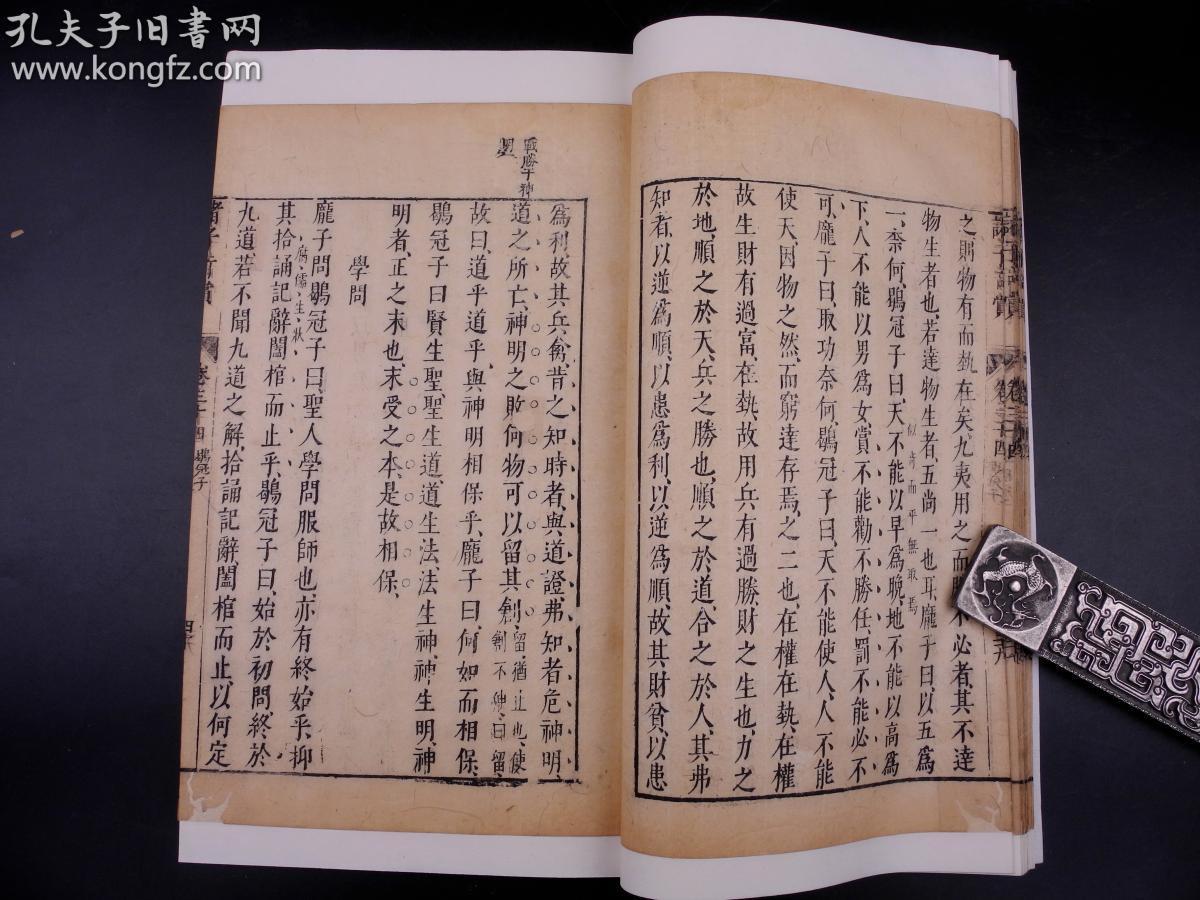 孔夫子旧书网
www.kongfz.com
之則物有而埶在矣九夷用之而勝不必者其不達
物生者也若達物生者五尚一也耳龐子曰以五爲
一奈何鶡冠子曰天不能以早爲晚地不能以高爲
似奇而平無取焉
下人不能以男爲女賞不能勸不勝任罰不能必不
可龐子曰取功奈何鶡冠子曰天不能使人人不能
使天因物之然而窮達存焉之二也在權在埶在權
故生財有過富在埶故用兵有過勝財之生也力之
於地順之於天兵之勝也順之於道合之於人其弗
知者以逆爲順以患爲利以逆爲順故其財貧以患
戰勝于神
爲利故其兵禽昔之知時者與道證弗知者危神明
道之所亡神明之敗何物可以留其創留猶止也使創不
故曰道乎道乎與神明相保乎龐子曰何如而相保
鶡冠子曰賢生聖聖生道道生法法生神神生明神
明者正之末也末受之本是故相保
學問
龐子問鶡冠子曰聖人學問服師也亦有終始乎抑
腐儒生狀
其拾誦記辭闔棺而止乎鶡冠子曰始於初問終於
九道若不聞九道之解拾誦記辭闔棺而止以何定
卷三十四
鶡冠子